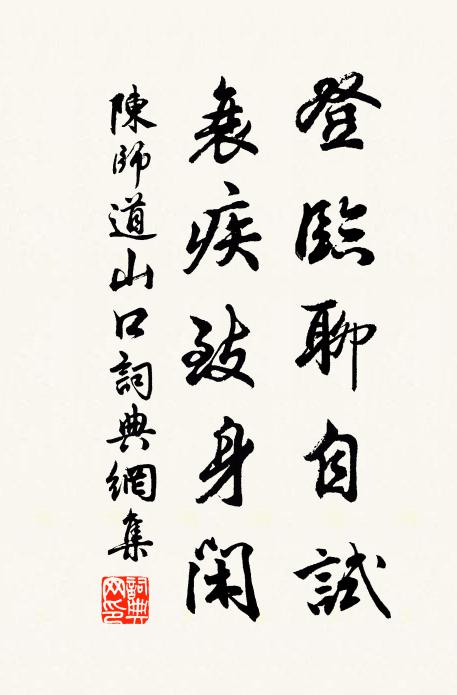 登臨聊自試
衰疾致身閑
陳師道山口詞典網集
詞典网印